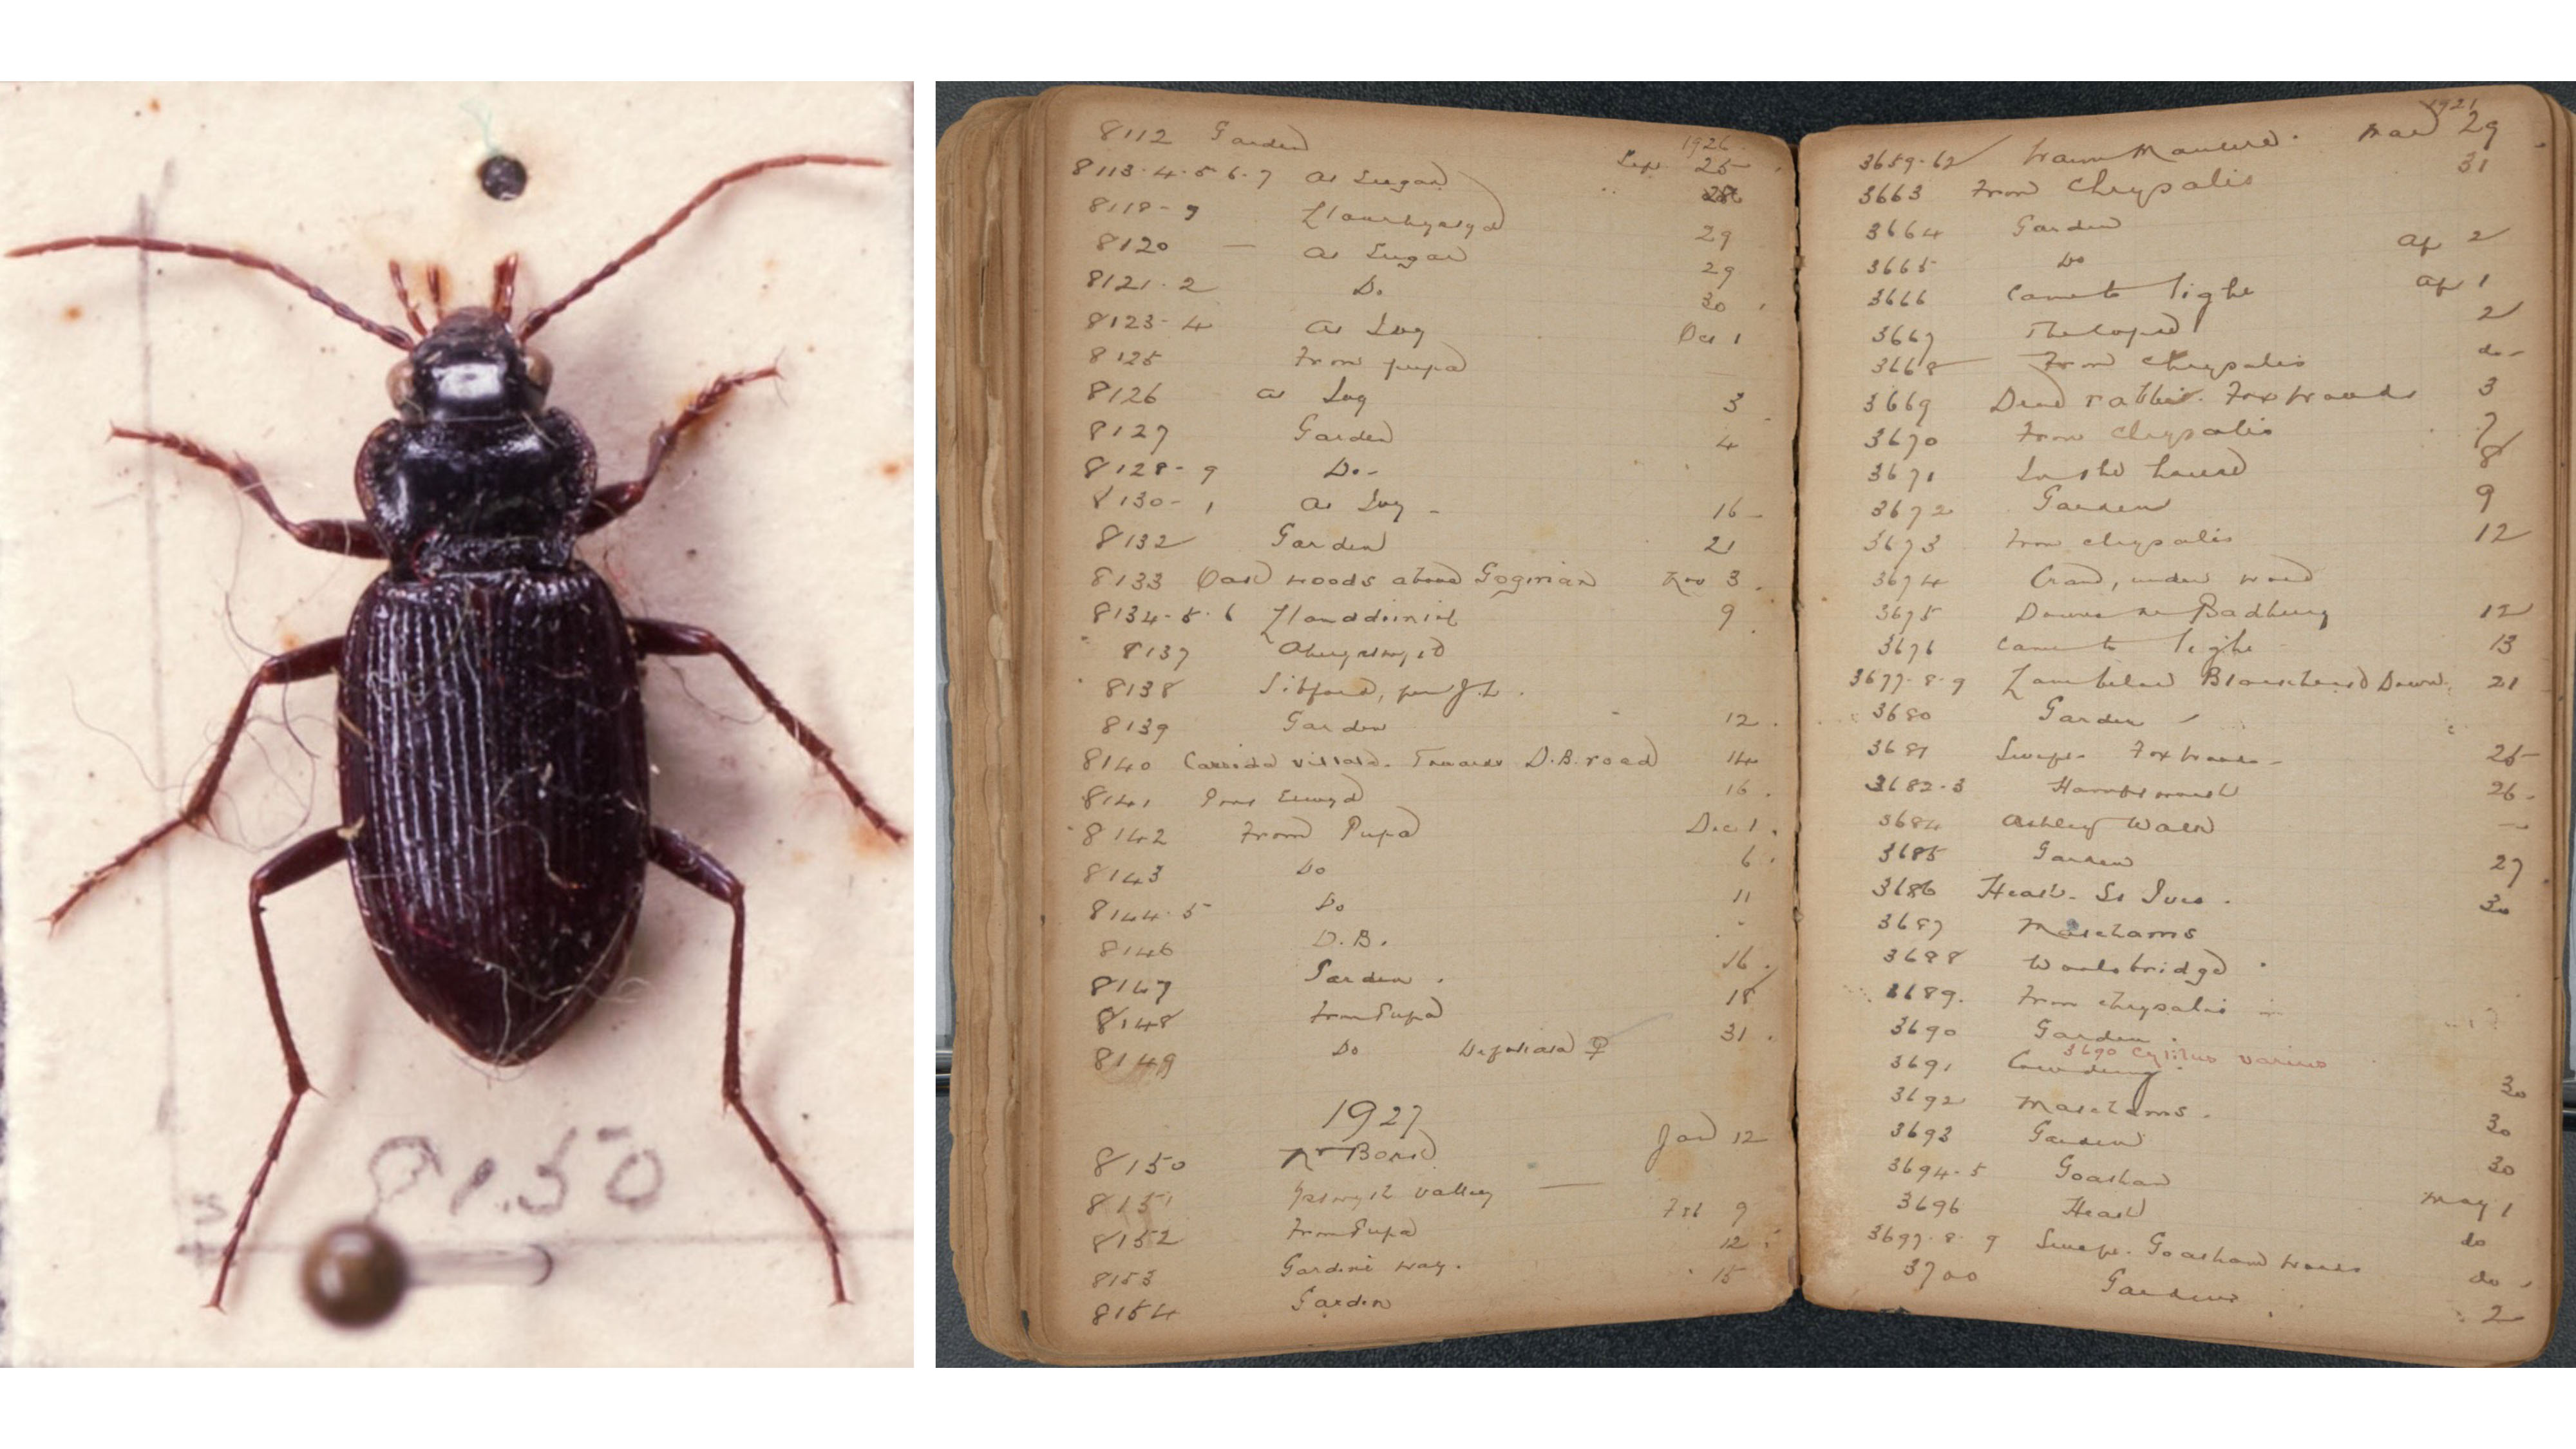 8150
8112 Garden 1926 Sep. 25
8113.4.5.6.7 at Sugar 28
8118-9 29
8120 — at Sugar 29
8121.2 Do 30
8123-4 at Ivy Oct 1
8125 From pupa
8126 at Ivy 3
8127 Garden 4
8128-9 Do-
8130-1 at Ivy - 16
8132 Garden 21
8133 Oak woods above Goginan Nov 3.
8134-5.6 Llanddeiniol 9
8137
8138 Sibford, per J.L.
8139 Garden 12.
8140 Cassida D.B. road 14
8141 16.
8142 From Pupa Dec 1.
8143 Do 6.
8144.5 Do 11
8146 D.B.
8147 Garden. 16.
8148 From Pupa 18
8149 Do ♀ 31.
1927
8150 Nr Borth Jan 12
8151 Ystwyth valley —
8152 From Pupa Feb 9
8153 way. 12
8154 Garden 15
1921
3659-62 Mar 29
3663 From Chrysalis 31
3664 Garden
3665 Do Ap 2
3666 Came to light Ap 1
3667 2
3668 From Chrysalis do-
3669 Dead rabbit. Foxwoods 3
3670 From Chrysalis 7
3671 In the house 8
3672 Garden 9
3673 From chrysalis 12
3674 under wood
3675 Downs nr Badbury 12
3676 Came to light 13
3677-8-9 Down 21
3680 Garden
3681 Swept. Foxwoods- 25
3682-3 26.
3684 Ashley Walk
3685 Garden 27
3686 Heath. St Ives. 30
3687
3688 Woolsbridge
3689. From chrysalis
3690 Garden.
3690 Cytilus varius
3691 Cow dung. 30
3692 30
3693 Garden 30
3694-5 Goatham May 1
3696 Heath do
3697.8.9 Swept. Goatham woods do
3700 Garden. 2